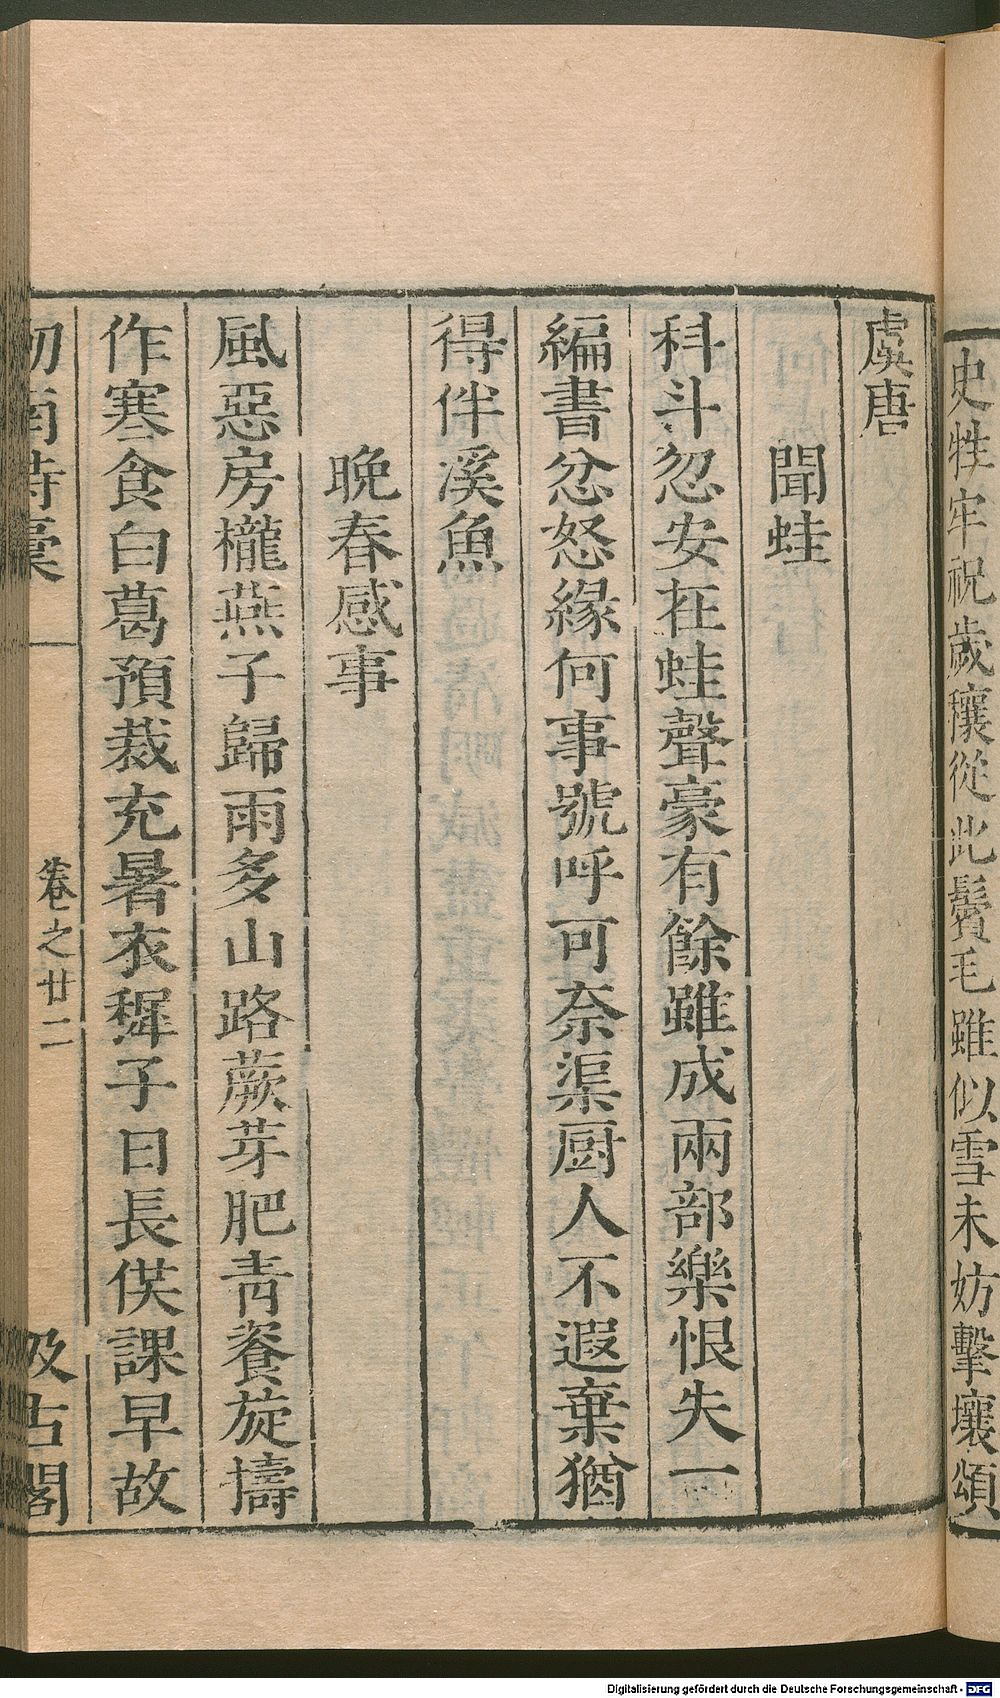 史牲牢祝歲穰從此鬢毛雖似雪未妨擊壤頌
虞唐
聞蛙
科斗忽安在蛙聲豪有餘雖成兩部樂恨失一
編書忿怒緣何事號呼可奈渠厨人不遐棄猶
得伴溪魚
晚春感事
風惡房櫳燕子歸雨多山路蕨芽肥青餈旋擣
作寒食白葛預裁充暑衣穉子日長供課早故
劒南詩稾
卷之廿二
汲古閣
Digitalisierung gefördert durch die Deutsche Forschungsgemeinschaft - DFG